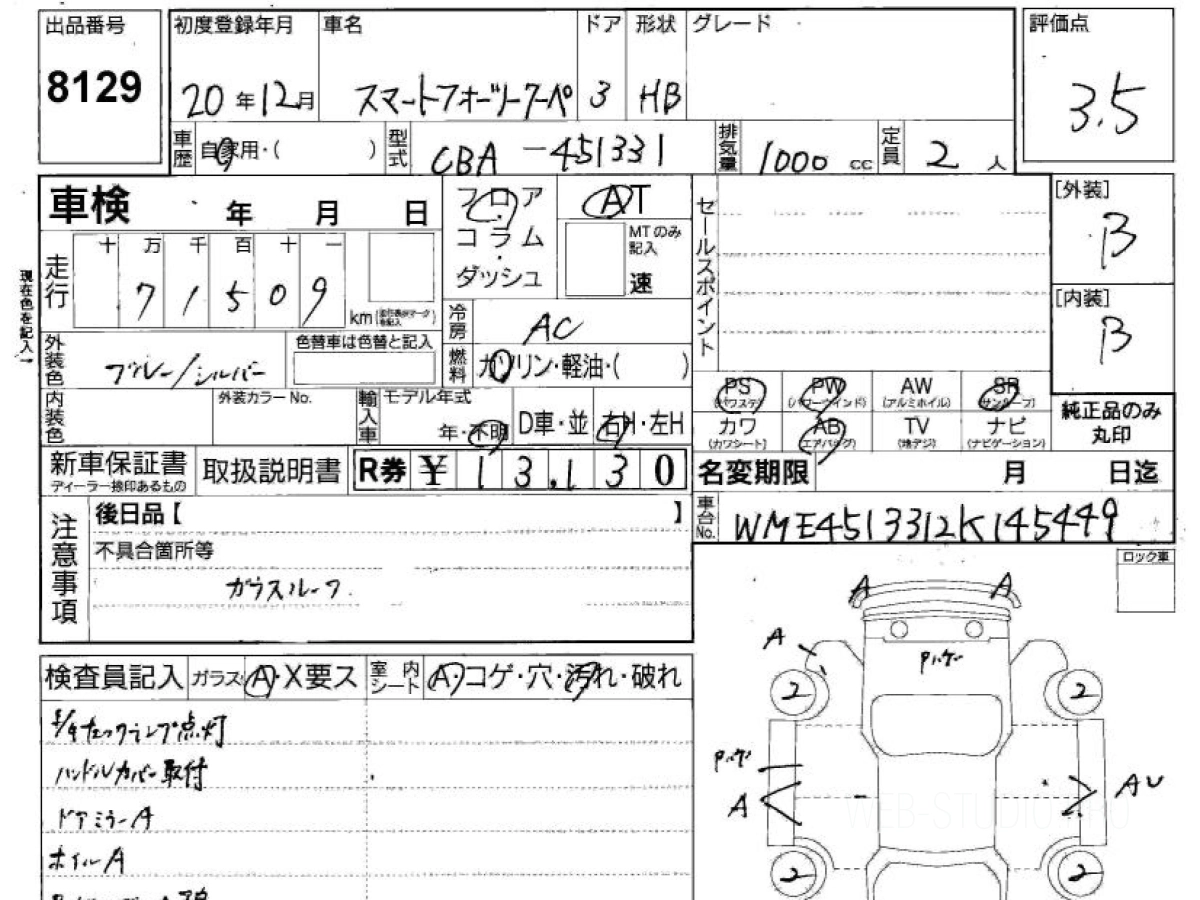 出品番号 初度登録年月 車名 ドア 形状 グレード 評価点
8129 20年12月 スマートフォーツークーペ 3 HB 3.5
車歴 自家用・( ) 型式 CBA-451331 排気量 1000 cc 定員 2 人
車検 年 月 日 フロア・コラム・ダッシュ AT セールスポイント [外装] B
現在色を記入→
走行 十 万 千 百 十 一 MTのみ記入 速
7 1 5 0 9 km
冷房 AC [内装] B
外装色 ブルー/シルバー 色替車は色替と記入 燃料 ガソリン・軽油・( )
PS (パワステ) PW (パワーウインド) AW (アルミホイル) SR (サンルーフ)
内装色 外装カラーNo. 輸入車 モデル年式 年・不明 D車・並 右H・左H
カワ (カワシート) AB (エアバッグ) TV (地デジ) ナビ (ナビゲーション) 純正品のみ丸印
新車保証書 ディーラー捺印あるもの 取扱説明書 R券 ¥ 13,130 名変期限 月 日迄
注意事項 後日品【 】 車台No. WME4513312K145449
不具合箇所等 ロック車
ガラスルーフ
A A
A
検査員記入 ガラス A・X要ス 室内シート A・コゲ・穴・汚れ・破れ
2 2
チェックランプ点灯
ハンドルカバー取付
A AU
ドアミラーA
WEB-STUDIO
ホイルA
2 2